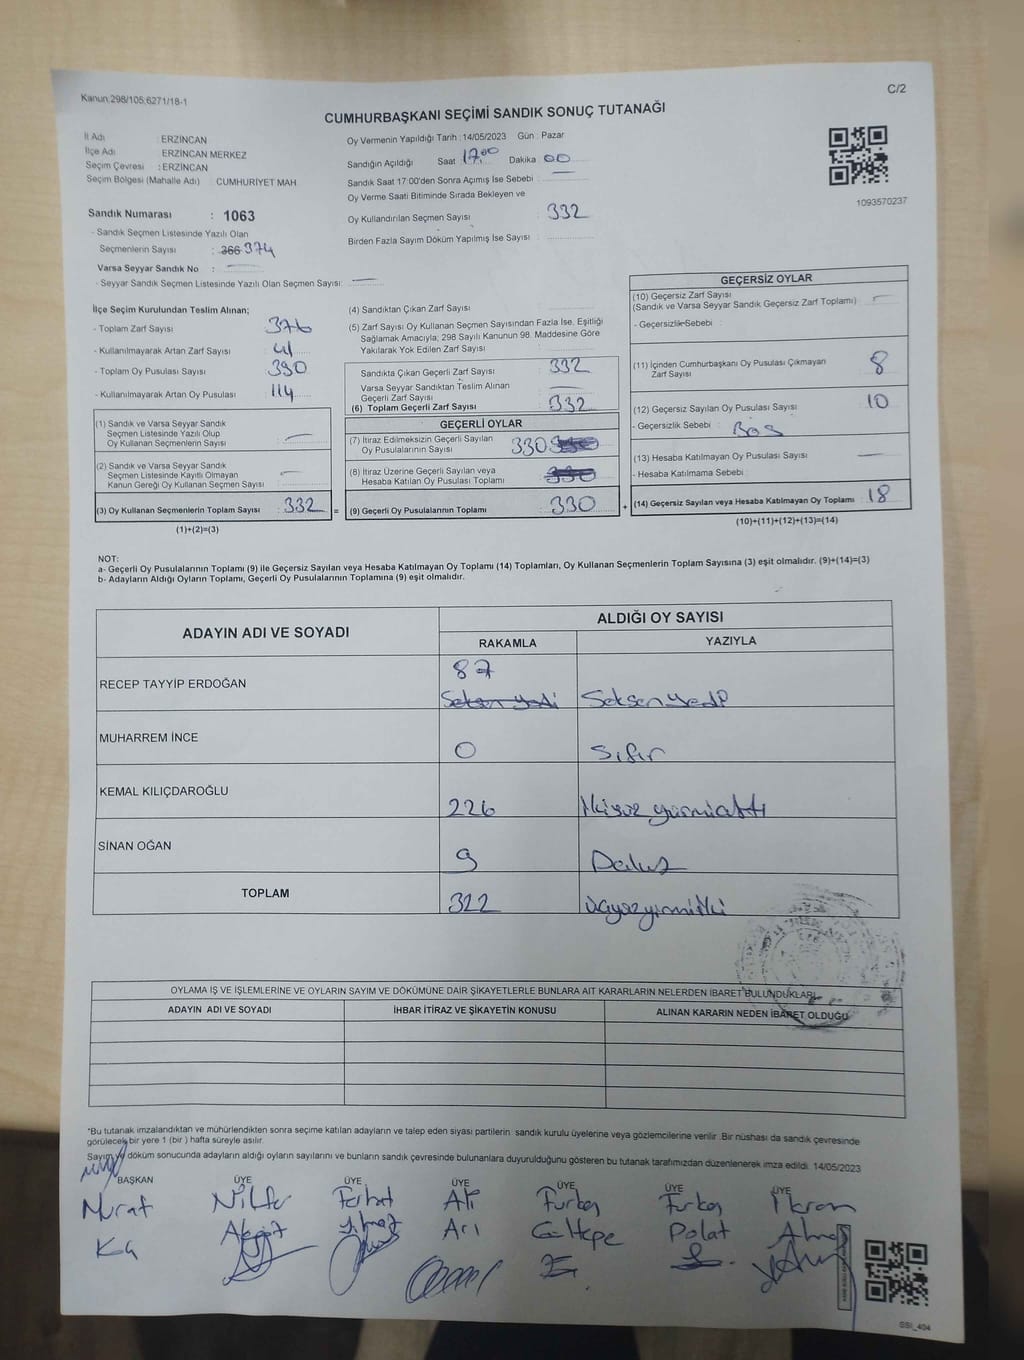 Kanun:298/105;6271/18-1
C/2
CUMHURBAŞKANI SEÇİMİ SANDIK SONUÇ TUTANAĞI
İl Adı : ERZİNCAN
İlçe Adı : ERZİNCAN MERKEZ
Seçim Çevresi : ERZİNCAN
Seçim Bölgesi (Mahalle Adı) : CUMHURİYET MAH.
Sandık Numarası : 1063
- Sandık Seçmen Listesinde Yazılı Olan
Seçmenlerin Sayısı : 366 374
Varsa Seyyar Sandık No :
- Seyyar Sandık Seçmen Listesinde Yazılı Olan Seçmen Sayısı:
Oy Vermenin Yapıldığı Tarih : 14/05/2023 Gün : Pazar
Sandığın Açıldığı Saat 17.00 Dakika 00
Sandık Saat 17:00'den Sonra Açımış İse Sebebi :
Oy Verme Saati Bitiminde Sırada Bekleyen ve
Oy Kullandırılan Seçmen Sayısı : 332
Birden Fazla Sayım Döküm Yapılmış İse Sayısı :
1093570237
İlçe Seçim Kurulundan Teslim Alınan;
- Toplam Zarf Sayısı 376
- Kullanılmayarak Artan Zarf Sayısı 41
- Toplam Oy Pusulası Sayısı 390
- Kullanılmayarak Artan Oy Pusulası 114
(1) Sandık ve Varsa Seyyar Sandık
Seçmen Listesinde Yazılı Olup
Oy Kullanan Seçmenlerin Sayısı
(2) Sandık ve Varsa Seyyar Sandık
Seçmen Listesinde Kayıtlı Olmayan
Kanun Gereği Oy Kullanan Seçmen Sayısı :
(3) Oy Kullanan Seçmenlerin Toplam Sayısı : 332 =
(1)+(2)=(3)
(4) Sandıktan Çıkan Zarf Sayısı
(5) Zarf Sayısı Oy Kullanan Seçmen Sayısından Fazla İse, Eşitliği
Sağlamak Amacıyla; 298 Sayılı Kanunun 98. Maddesine Göre
Yakılarak Yok Edilen Zarf Sayısı
Sandıkta Çıkan Geçerli Zarf Sayısı : 332
Varsa Seyyar Sandıktan Teslim Alınan
Geçerli Zarf Sayısı
(6) Toplam Geçerli Zarf Sayısı : 332
GEÇERLİ OYLAR
(7) İtiraz Edilmeksizin Geçerli Sayılan
Oy Pusulalarının Sayısı 330
(8) İtiraz Üzerine Geçerli Sayılan veya
Hesaba Katılan Oy Pusulası Toplamı : 330
(9) Geçerli Oy Pusulalarının Toplamı : 330 +
GEÇERSİZ OYLAR
(10) Geçersiz Zarf Sayısı
(Sandık ve Varsa Seyyar Sandık Geçersiz Zarf Toplamı) :
- Geçersizlik Sebebi :
(11) İçinden Cumhurbaşkanı Oy Pusulası Çıkmayan
Zarf Sayısı : 8
(12) Geçersiz Sayılan Oy Pusulası Sayısı : 10
- Geçersizlik Sebebi : Boş
(13) Hesaba Katılmayan Oy Pusulası Sayısı :
- Hesaba Katılmama Sebebi :
(14) Geçersiz Sayılan veya Hesaba Katılmayan Oy Toplamı : 18
(10)+(11)+(12)+(13)=(14)
NOT:
a- Geçerli Oy Pusulalarının Toplamı (9) ile Geçersiz Sayılan veya Hesaba Katılmayan Oy Toplamı (14) Toplamları, Oy Kullanan Seçmenlerin Toplam Sayısına (3) eşit olmalıdır. (9)+(14)=(3)
b- Adayların Aldığı Oyların Toplamı, Geçerli Oy Pusulalarının Toplamına (9) eşit olmalıdır.
ADAYIN ADI VE SOYADI
ALDIĞI OY SAYISI
RAKAMLA YAZIYLA
RECEP TAYYİP ERDOĞAN 87 Seksen yedi Seksen yedi
MUHARREM İNCE 0 Sıfır
KEMAL KILIÇDAROĞLU 226 İkiyüz yirmialtı
SİNAN OĞAN 9 Dokuz
TOPLAM 322 üçyüzyirmiiki
OYLAMA İŞ VE İŞLEMLERİNE VE OYLARIN SAYIM VE DÖKÜMÜNE DAİR ŞİKAYETLERLE BUNLARA AİT KARARLARIN NELERDEN İBARET BULUNDUKLARI
ADAYIN ADI VE SOYADI İHBAR İTİRAZ VE ŞİKAYETİN KONUSU ALINAN KARARIN NEDEN İBARET OLDUĞU
*Bu tutanak imzalandıktan ve mühürlendikten sonra seçime katılan adayların ve talep eden siyasi partilerin sandık kurulu üyelerine veya gözlemcilerine verilir. Bir nüshası da sandık çevresinde
görülecek bir yere 1 (bir ) hafta süreyle asılır.
Sayım ve döküm sonucunda adayların aldığı oyların sayılarını ve bunların sandık çevresinde bulunanlara duyurulduğunu gösteren bu tutanak tarafımızdan düzenlenerek imza edildi. 14/05/2023
BAŞKAN ÜYE ÜYE ÜYE ÜYE ÜYE ÜYE
Murat Nilfer Ferhat Ali Furkan Furkan İkram
Yılmaz Arı Gültepe Polat
SSI_404